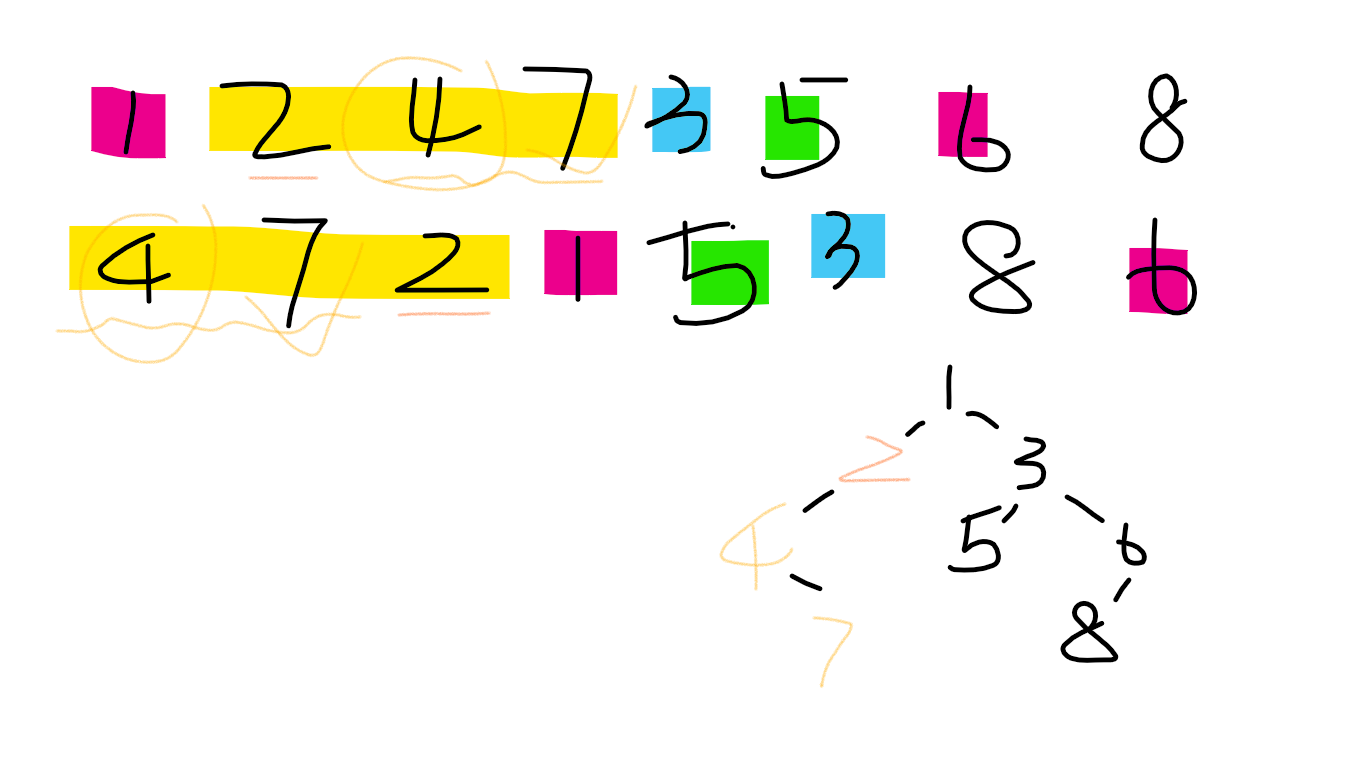 1 2 4 7 3 5 6 8
4 7 2 1 5 3 8 6
1
2 3
4 5 6
7 8